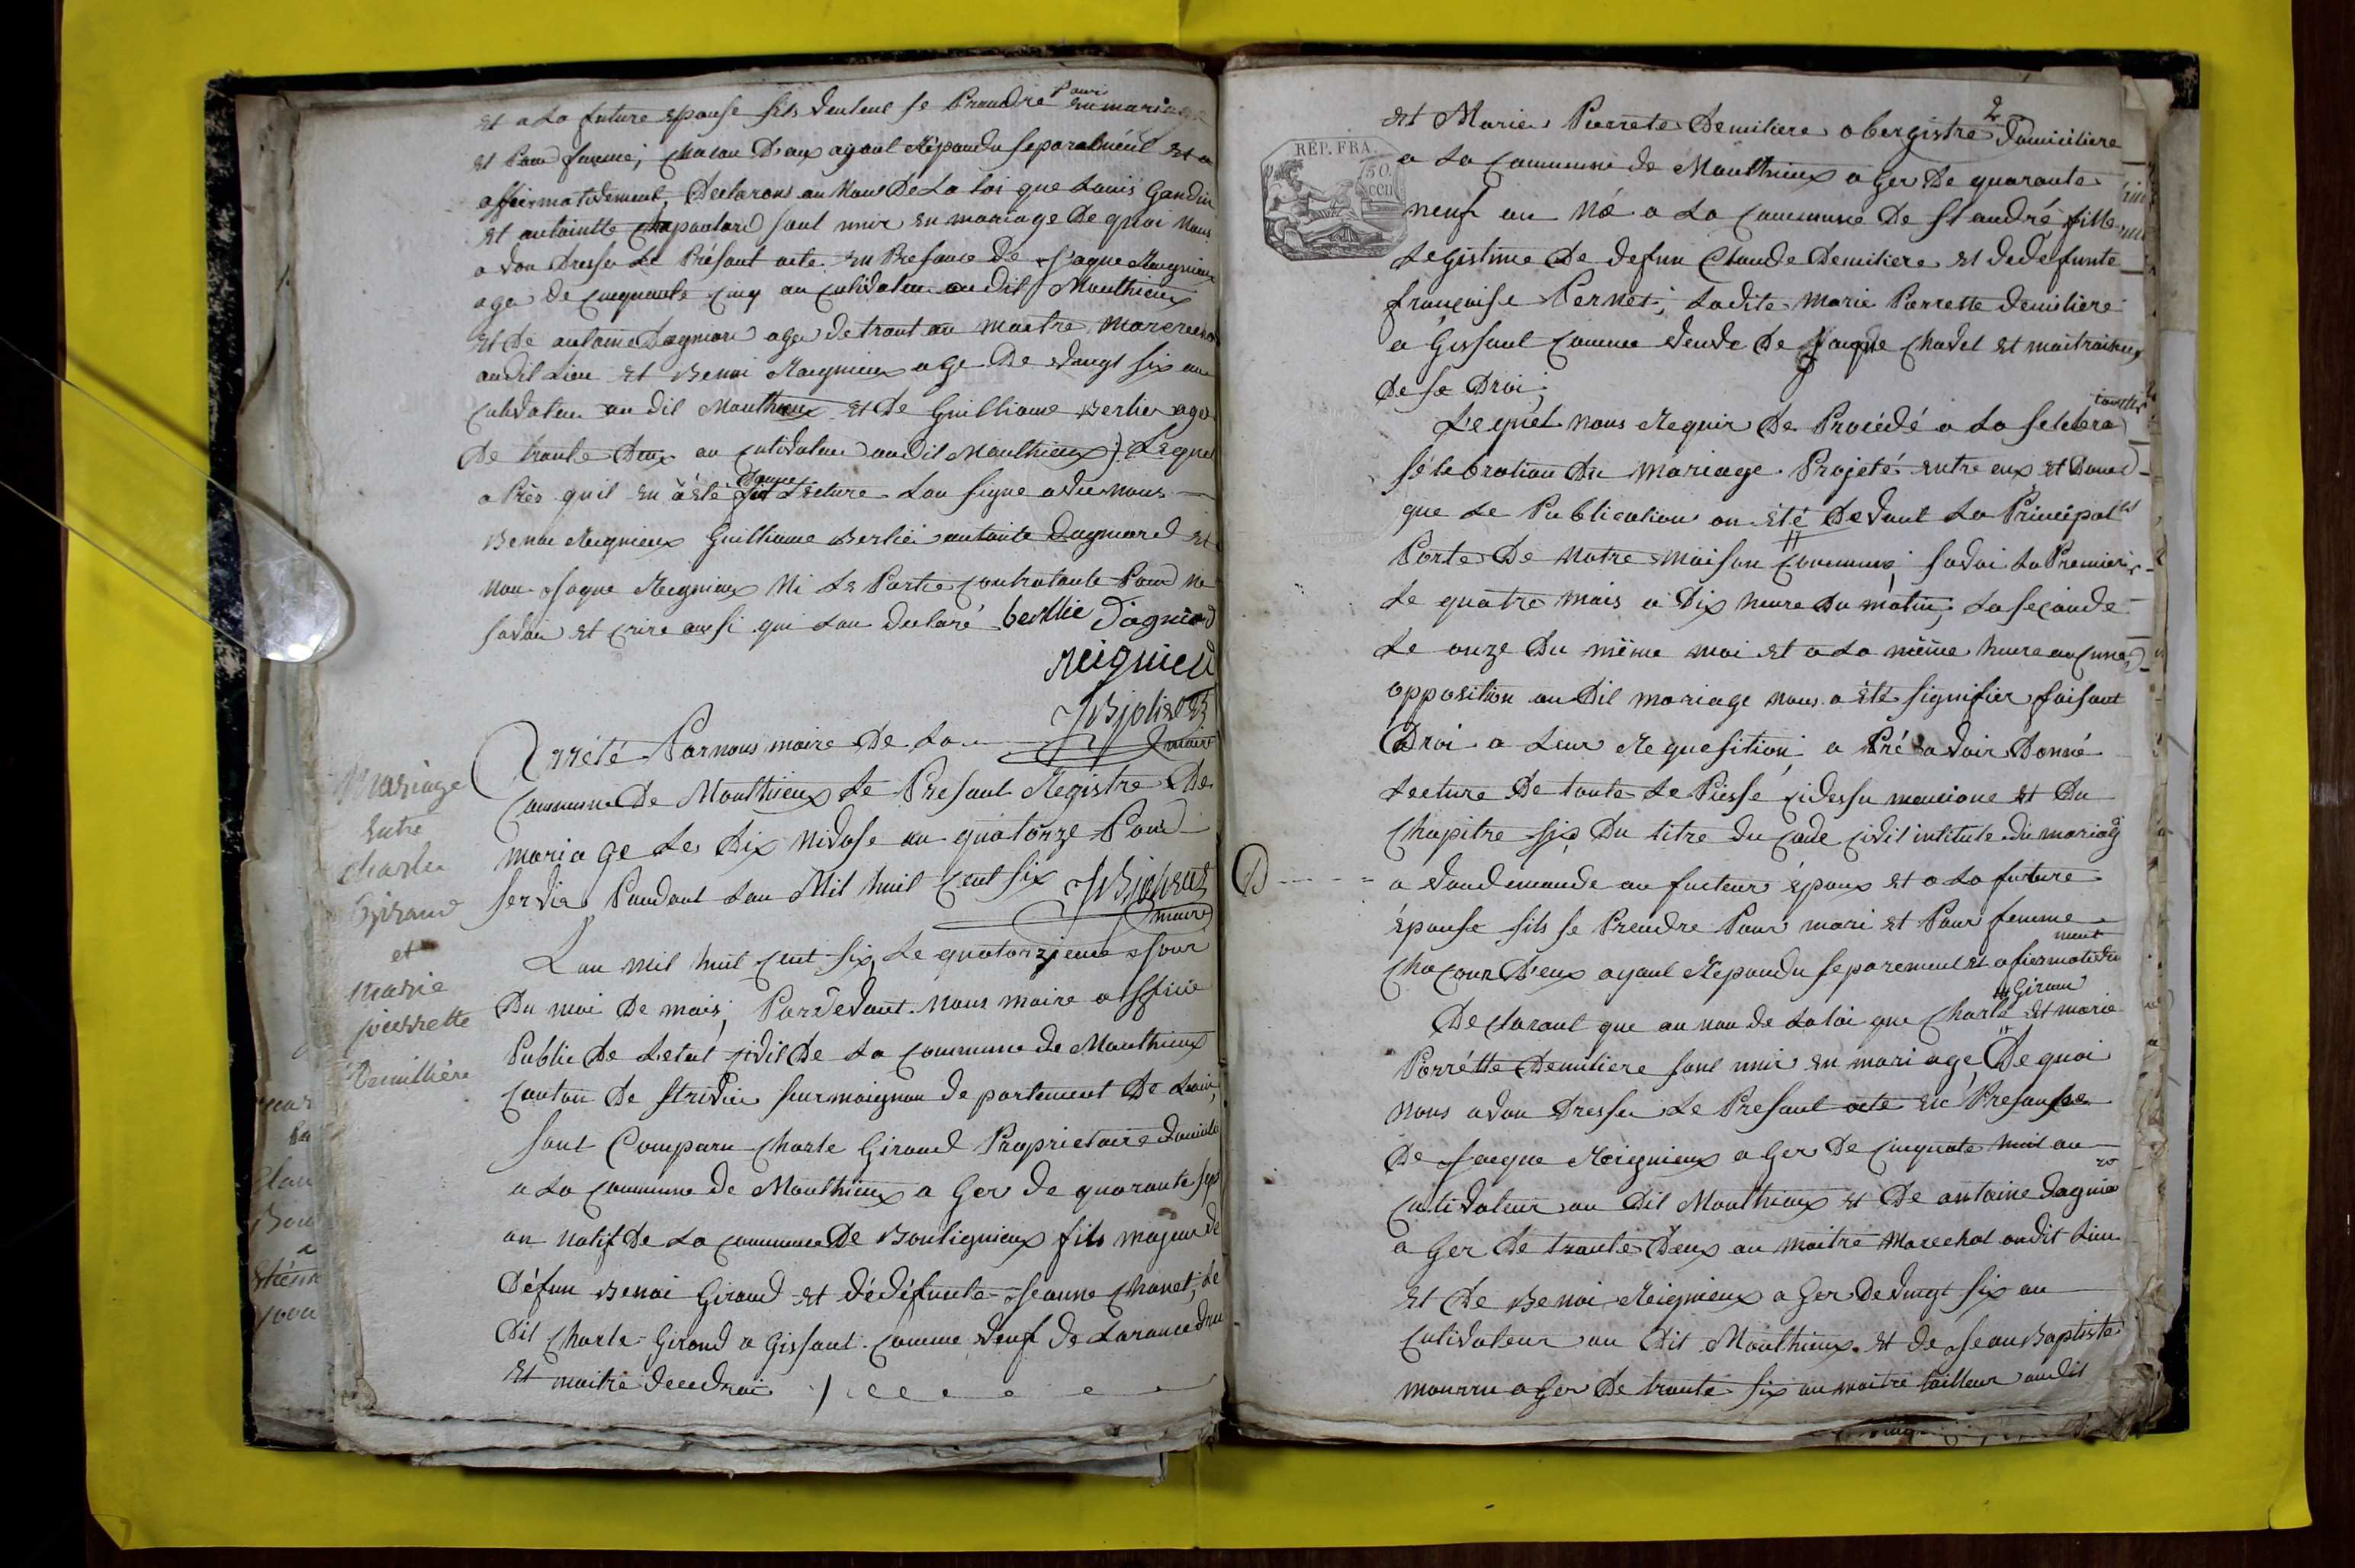 et a La future epouse sils veuleut se Prandre Pour en mariage
et Pour femme; chacun Deux ayant Répondu separalnént et a
affirmativement, Declarons au Nom De La Loi que Louis Gandin
et antointte chapoutard sont unir en mariage De quoi Nous
avon Dresser Le Présant acte. en Presance De Jaque Reignieux
age De cinquante cinq an cultivateu au dit Monthieux
et De antoine Dagniare age de trant an maitre marechal
audit Lieu et Benoi Reignieux age De vingt six an
cultivateu au dit Monthieux et De Guilliaume Berlie age
De trante Deux an cultivateur au dit Monthieux; Lequel
a Près quil en a été fait Donné Lecture Lon signe avec nous
Benoi Reignieux Guilliaume Berlié antoine Dagniard et
non Jaque Reignieux Ni Le Partie contratante Pour ne
savoir et crire aussi qui Lon declaré berllie Dagniard
Reignieu
JB joli
maire
Arrété Par nous maire De La
commune De Monthieux Le Presant Régistre De
mariage Le Dix Nivose an quatorze Pour
servir Pandant Lan Mil huit cent six JB joli
maire
Mariage
entre
charles
Giraud
et
marie
pierrette
Demillière
Lan mil huit cent six, Le quatorzieme Jour
Du moi De mais, Pardevant Nous maire officié
Public De Letat sivil De La commune de Monthieux
canton De St trivier sur moignan departement De Lain,
sont Comparu charle Giraud Proprietaire domicilie
a La commune de Monthieux a Ger de quarante sept
an natif De La commune De Bouligneux fils majeur de
Défun Benoi Giraud et dédéfunte Jeanne chanet; Le
Dit charle Giraud a Gissant comme veuf de
et maitre decedroi
2
RÉP. FRA.
50.
cen
et Marie Pierrete Demiliere obergistre Domiciliere
a La commune de Monthieux a Ger De quarante
neuf an Né a La commune De St andré fille
Legistime De defun Claude Demiliere et dedefunte
françoise Pernet; Ladite marie Pierrette demiliere
a Gissant comme veuve De Jaque chavel et maitraisse
de se Droi;
Lequél nous Requir De Procédé a La selebra
sélébration Du mariage Projeté entre eux et Dont
que Le Publication on été Devant La Principal
Porte De Notre maison commune; savoi La Premiere
Le quatre mais a Dix heure Du matin; La seconde
Le onze Du même moi et a La même heure aucune
opposition au Dit mariage nous a été signifier faisant
Droi a Leur Requesition, a Pré avoir Donné
Lecture De toute Le Piesse cidessu mensione et Du
chapitre six Du titre du code civil intitule du mariag
a vondemande au futeur époux et a La future
épouse sils se Prendre Pour mari et Pour femme
chacun D'eux ayant Répondu separement et afiermative
ment
Declarant que au non de La loi que charle Giraud et marie
Pierrétte Demiliere sont unir en mariage De quoi
nous avon Dresser Le Presant acte en Presansee
De Jacque Reignieux a Ger De cinquate huit an
cultivateur au Dit Monthieux et De antoine dagnia
a Ger De trante Deux an maitre Marechal audit Lieu
et De Benoi Reignieux a Ger De vingt six an
cultivateur au Dit Monthieux et de Jean Baptiste
mourru a Ger De trante six an maitre tailleur audit